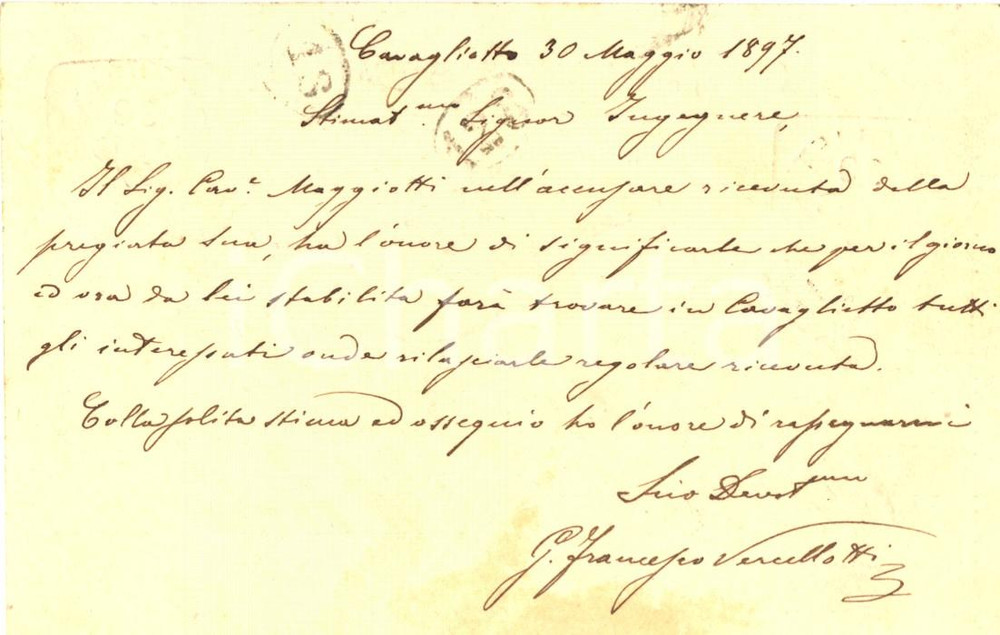 Cavaglietto 30 Maggio 1897.
Stimat.mo Signor Ingegnere,
Il Sig. Cav.e Maggiotti nell'accusare ricevuta della
pregiata sua, ha l'onore di significarle che per il giorno
ed ora da lei stabilita farà trovare in Cavaglietto tutti
gli interessati onde rilasciarle regolare ricevuta.
Colla solita stima ed ossequio ho l'onore di rassegnarmi
Suo Devot.mo
G. Francesco Vercellotti